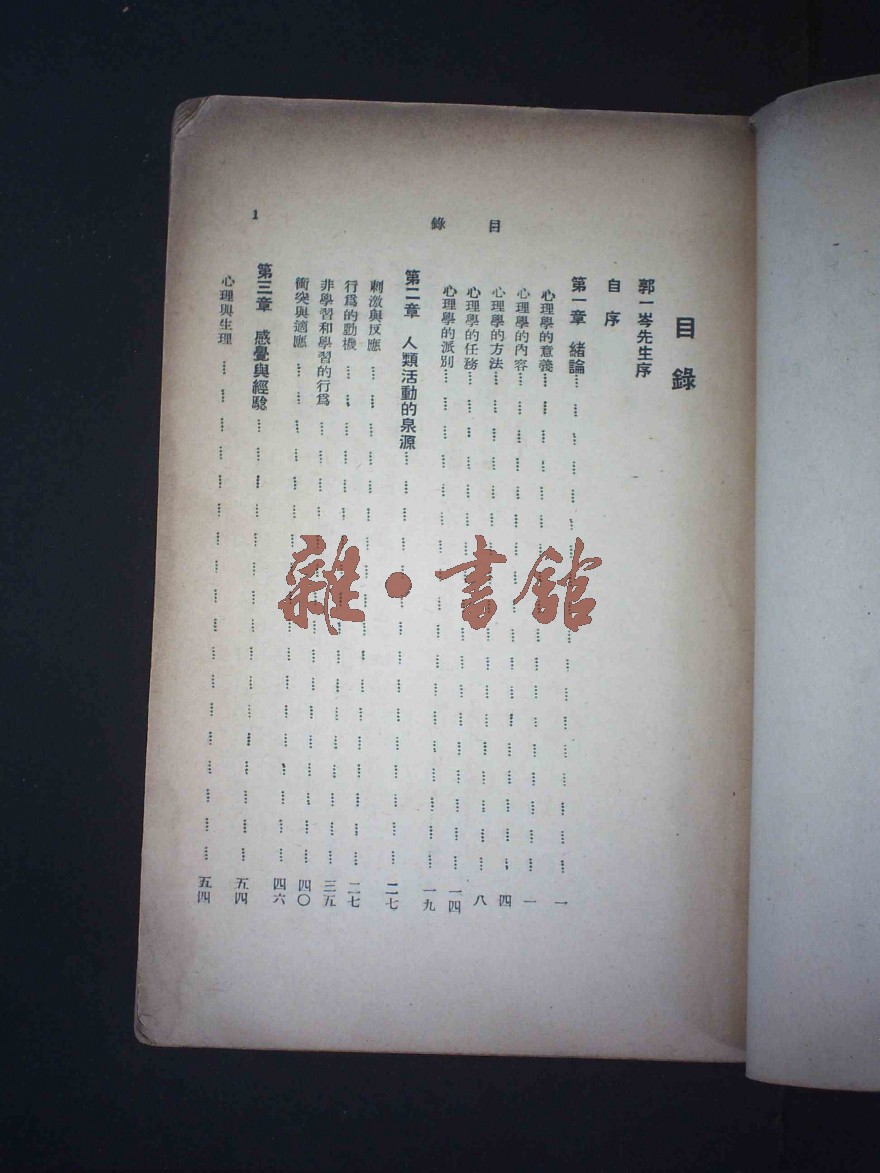 目錄
1
目錄
郭一岑先生序
自序
第一章 緒論…………一
心理學的意義…………一
心理學的內容…………四
心理學的方法…………八
心理學的任務…………一四
心理學的派別…………一九
第二章 人類活動的泉源…………二七
刺激與反應…………二七
行爲的動機…………三五
非學習和學習的行爲…………四〇
衝突與適應…………四六
第三章 感覺與經驗…………五四
心理與生理…………五四
雜·書館